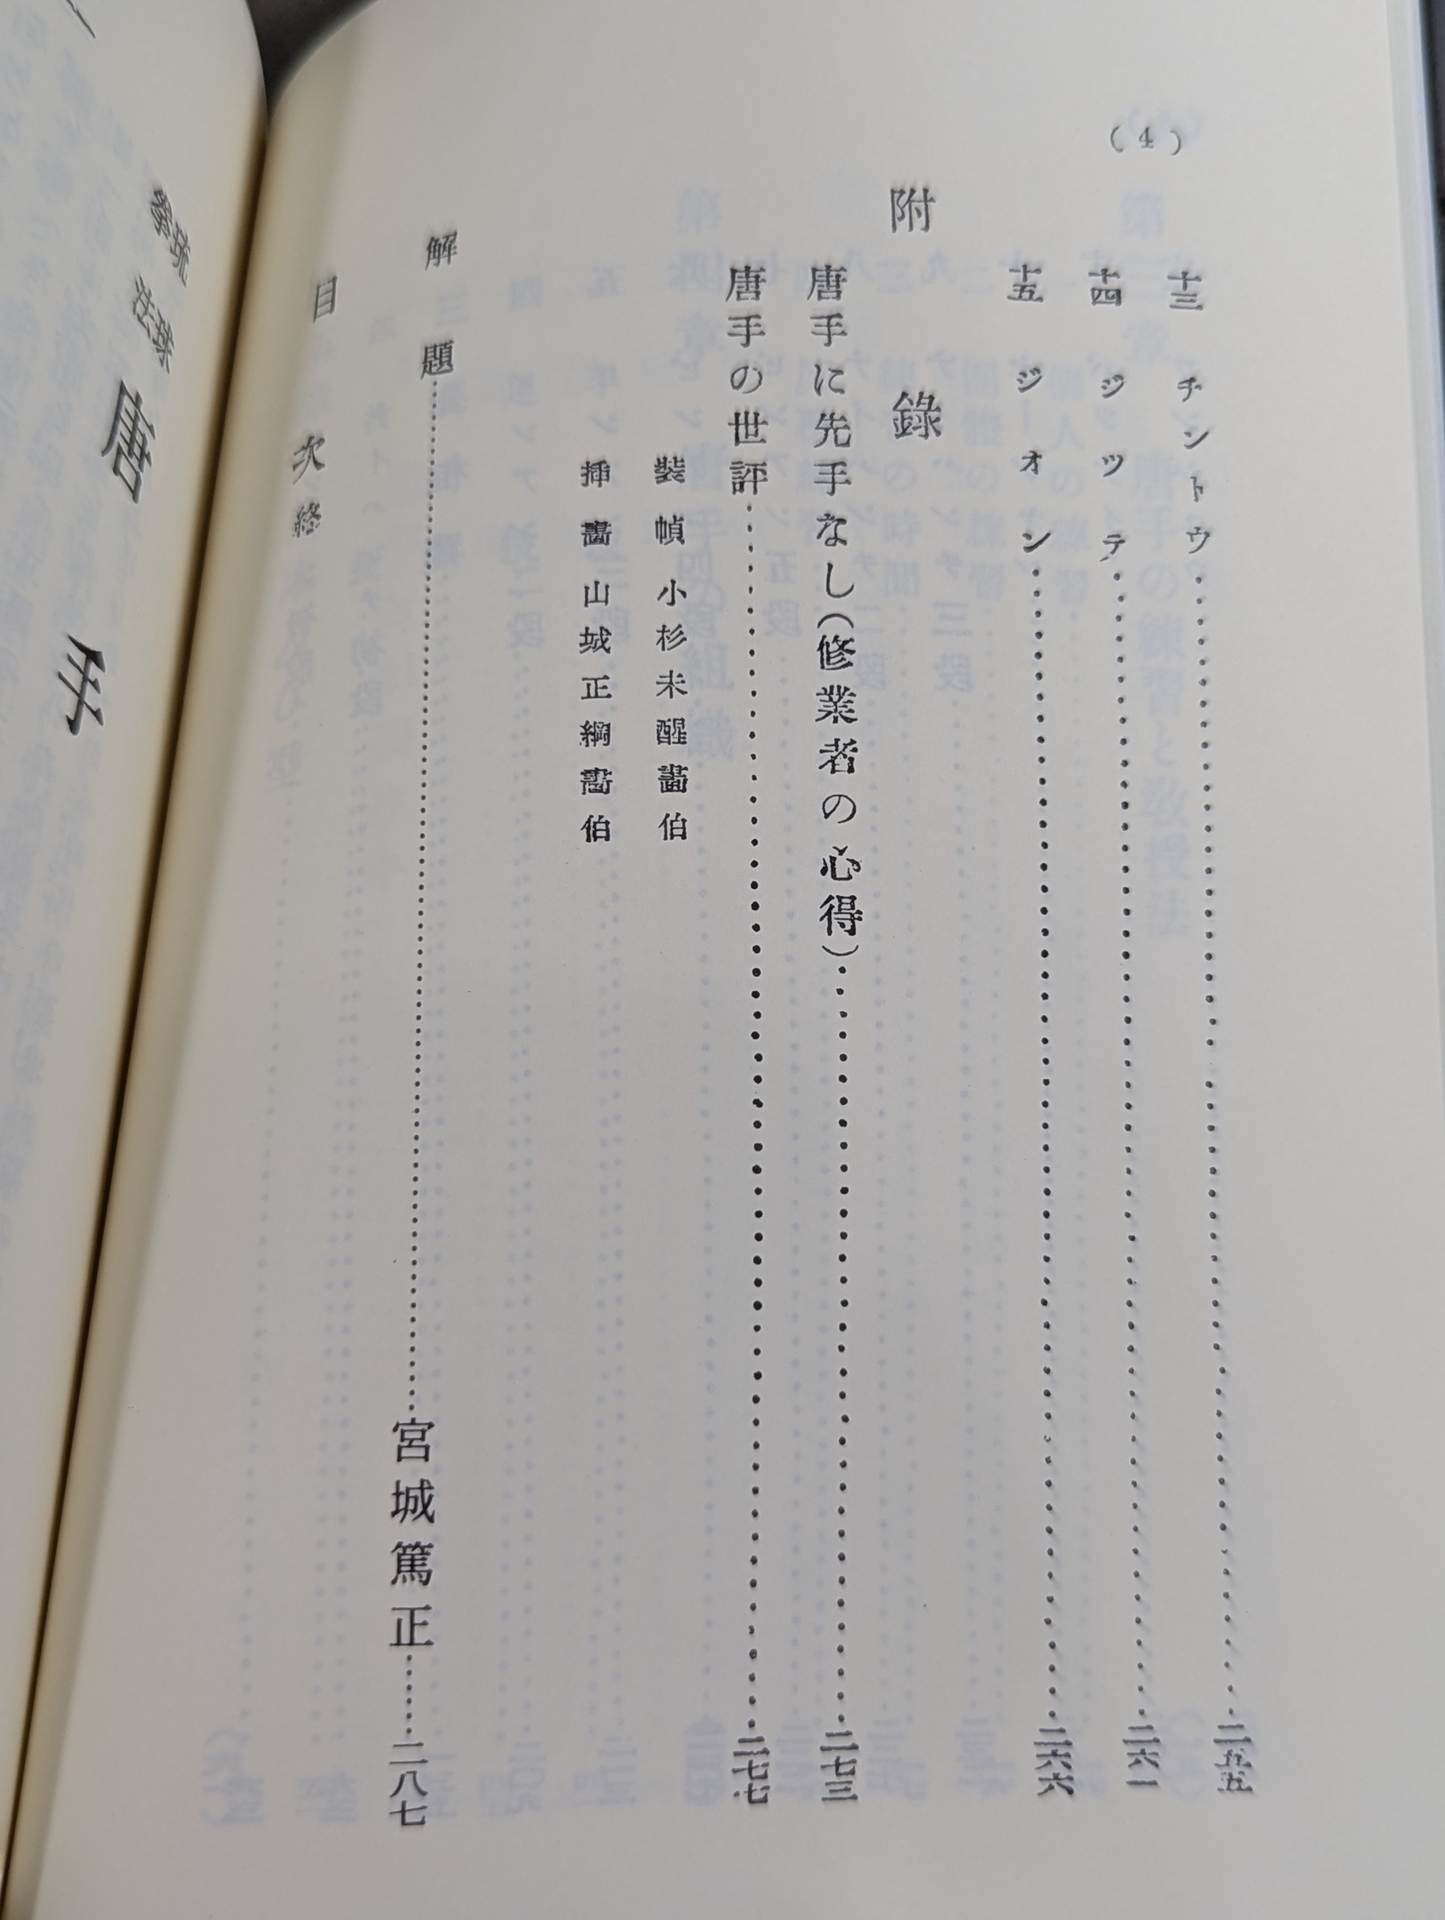 (4)
十三 チントウ……二五五
十四 ジツテ……二六一
十五 ジオン……二六六
附錄
唐手に先手なし(修業者の心得)……二七三
唐手の世評……二七七
裝幀 小杉未醒畵伯
挿畵 山城正綱畵伯
解題……宮城篤正……二八七
目次終
琉球
拳法
唐手